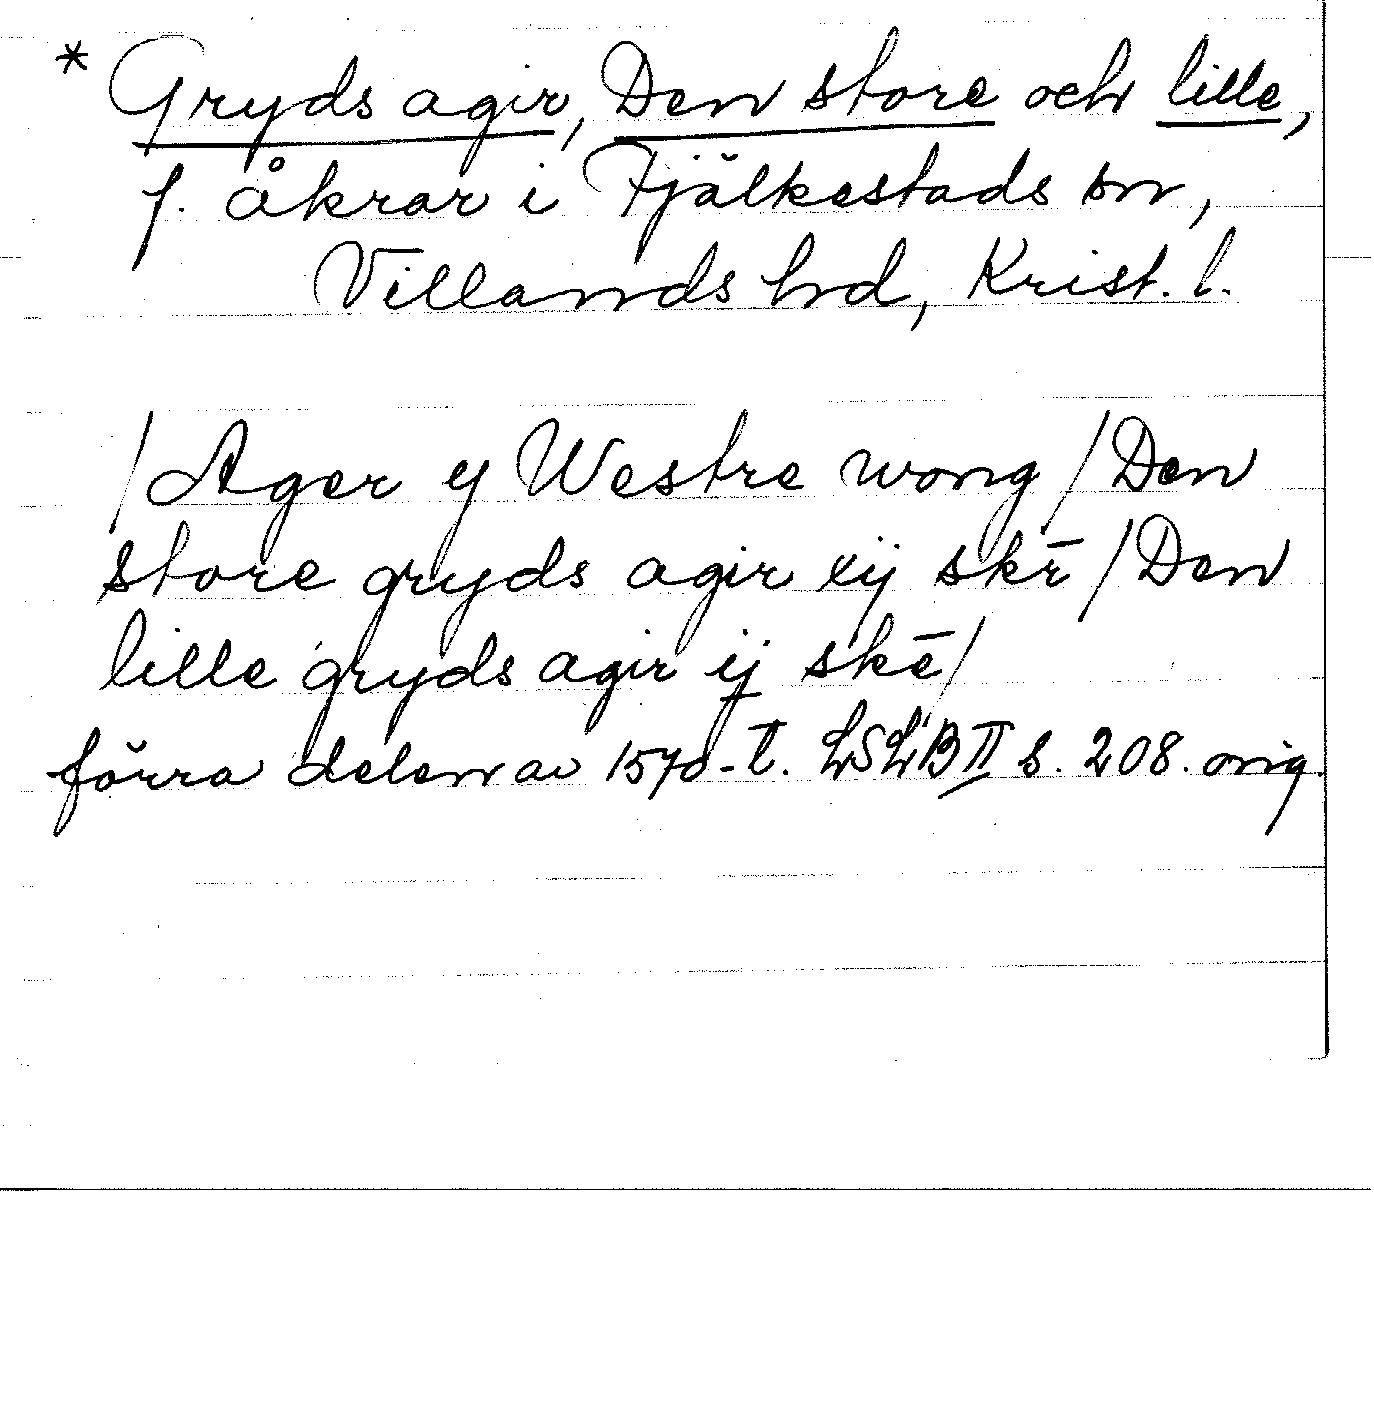 * Gryds agir, Den store och lille,
f. åkrar i Fjälkestads sn,
Villands hrd, Krist. l.
/Ager y Westre wong/Den
store gryds agir xij skr̄/Den
lille gryds agir ij skē/
förra delen av 1570-t. LSLB II s. 208. orig.